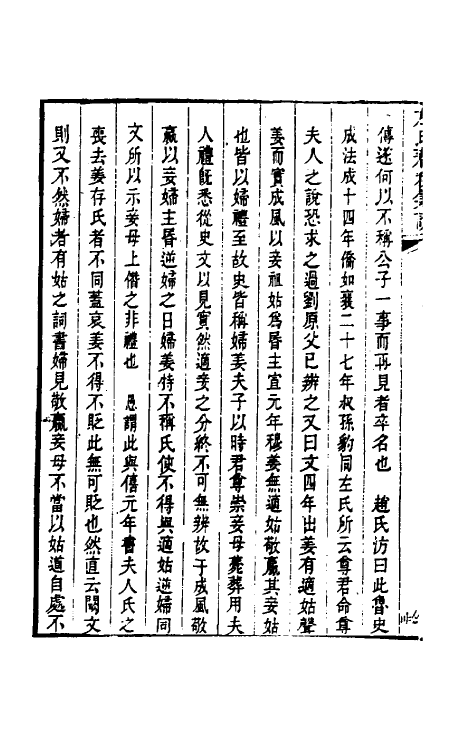 傳遂何以不稱公子一事而再見者卒名也　趙氏汸曰此魯史
成法成十四年僑如襄二十七年叔孫豹同左氏所云尊君命尊
夫人之說恐求之過劉原父已辨之又曰文四年出姜有適姑聲
姜而實成風以妾祖姑為昏主宣元年穆姜無適姑敬嬴其妾姑
也皆以婦禮至故史皆稱婦姜夫子以時君尊崇妾母薨葬用夫
人禮旣悉從史文以見實然適妾之分終不可無辨故于成風敬
嬴以妾婦主昏逆婦之日婦姜特不稱氏使不得與適姑逆婦同
文所以示妾母上僭之非禮也　愚謂此與僖元年書夫人氏之
喪去姜存氏者不同蓋哀姜不得不貶此無可貶也然直云闕文
則又不然婦者有姑之詞書婦見敬嬴妾母不當以姑道自處不